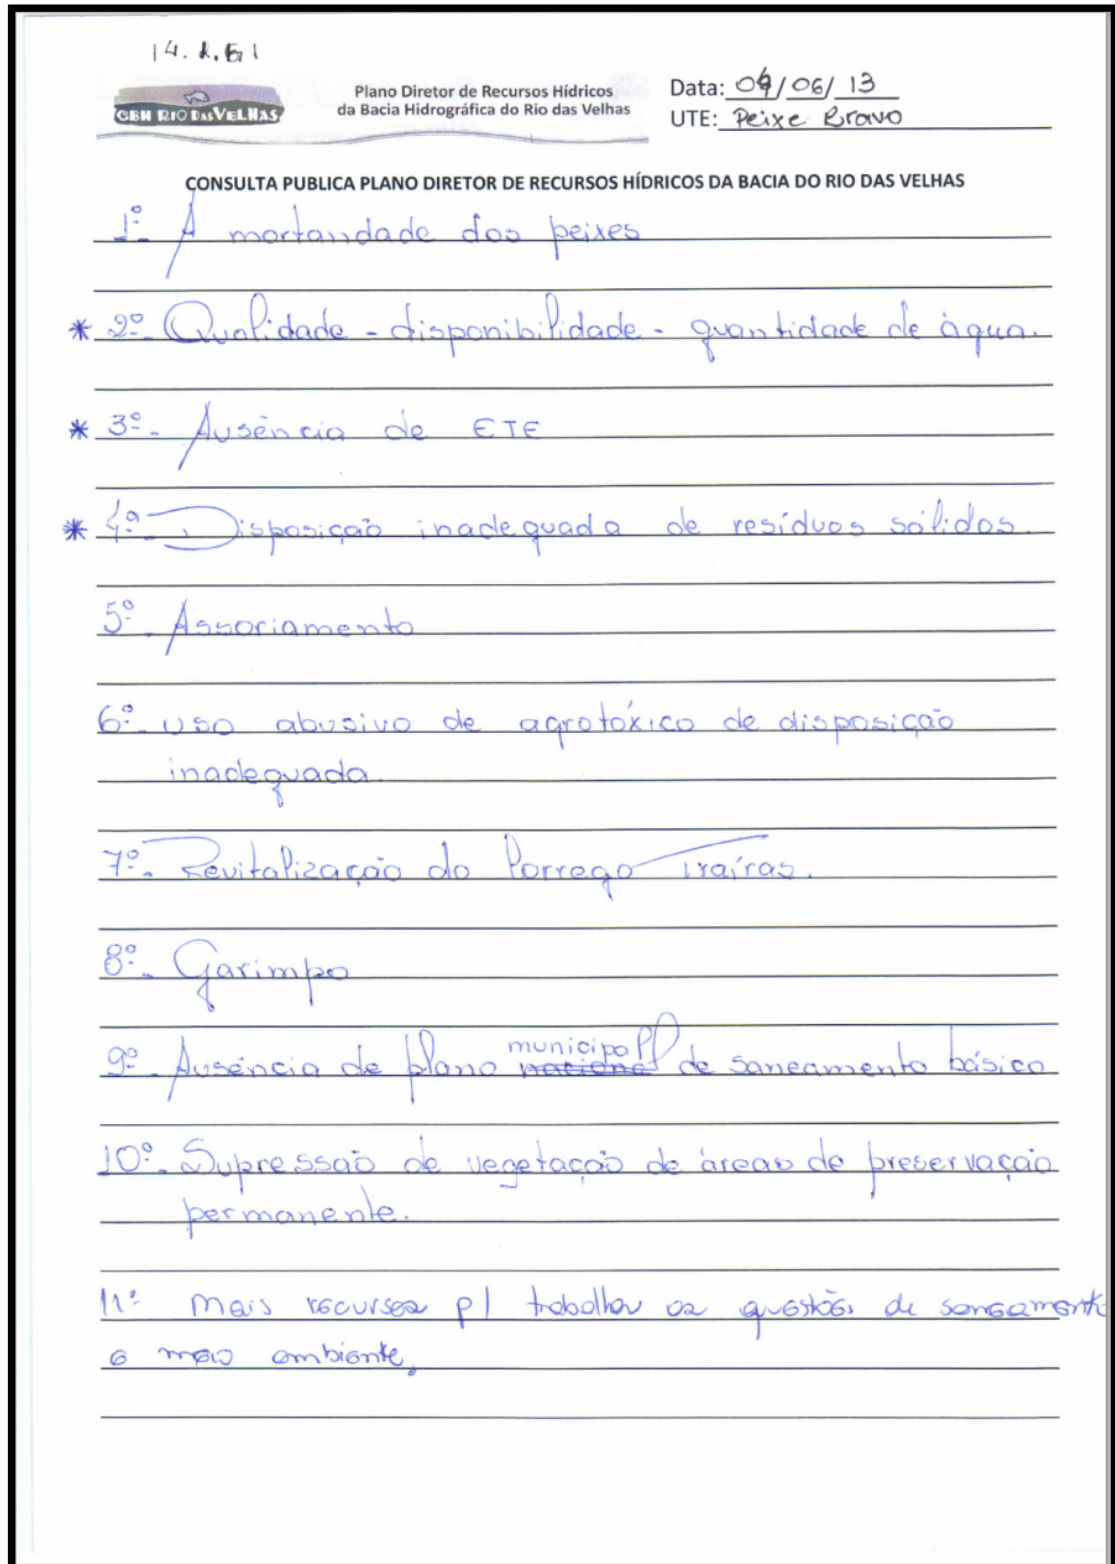 14.1.G1
CBH RIO DAS VELHAS
Plano Diretor de Recursos Hídricos
da Bacia Hidrográfica do Rio das Velhas
Data: 04/06/13
UTE: Peixe Bravo
CONSULTA PUBLICA PLANO DIRETOR DE RECURSOS HÍDRICOS DA BACIA DO RIO DAS VELHAS
1º- A mortandade dos peixes
* 2º- Qualidade - disponibilidade - quantidade de àgua.
* 3º- Ausência de ETE
* 4º- Disposição inadequada de resíduos sólidos.
5º- Assoriamento
6º- uso abusivo de agrotóxico de disposição
inadequada.
7º- Revitalização do Corrego Traíras.
8º- Garimpo
9º- Ausência de plano nacional municipal de saneamento básico
10º- Supressão de vegetação de àreas de preservação
permanente.
11º Mais recursos p/ trabalhar as questões de saneamento
e meio ambiente.